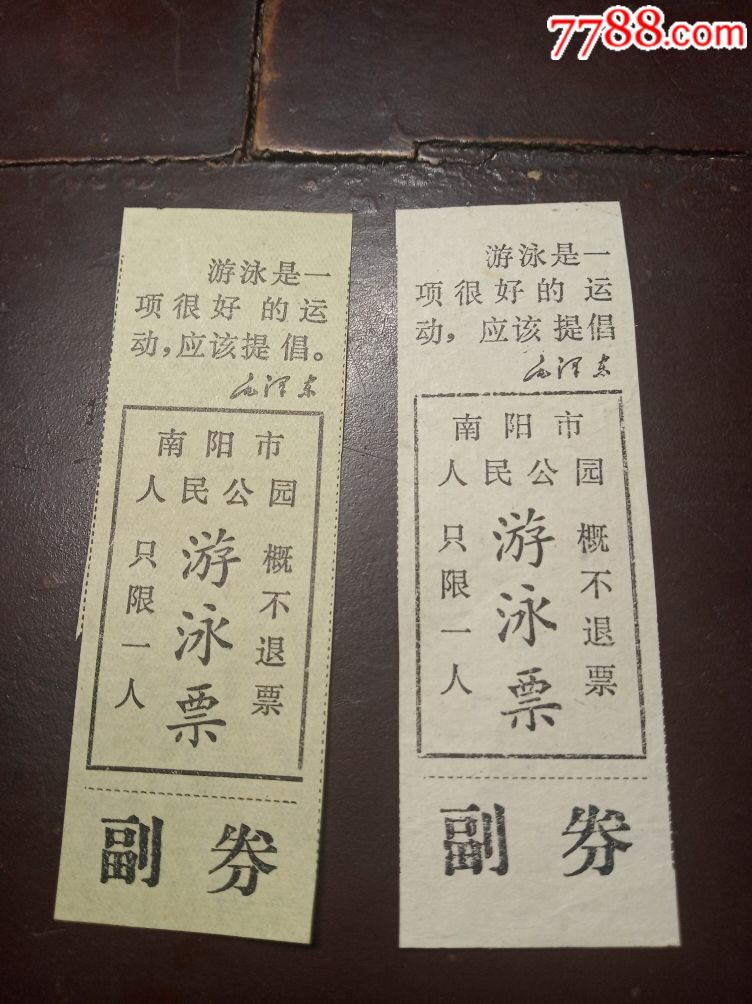 7788.com
游泳是一
项很好的运
动，应该提倡。
毛泽东
南阳市
人民公园
游泳票
只限一人
概不退票
副券
游泳是一
项很好的运
动，应该提倡
毛泽东
南阳市
人民公园
游泳票
只限一人
概不退票
副券